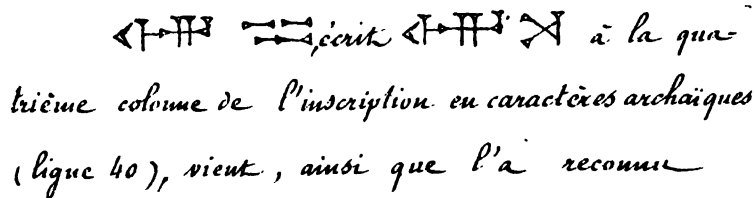 , écrit à la qua-
trième colonne de l'inscription en caractères archaïques
(ligne 40), vient, ainsi que l'a reconnu